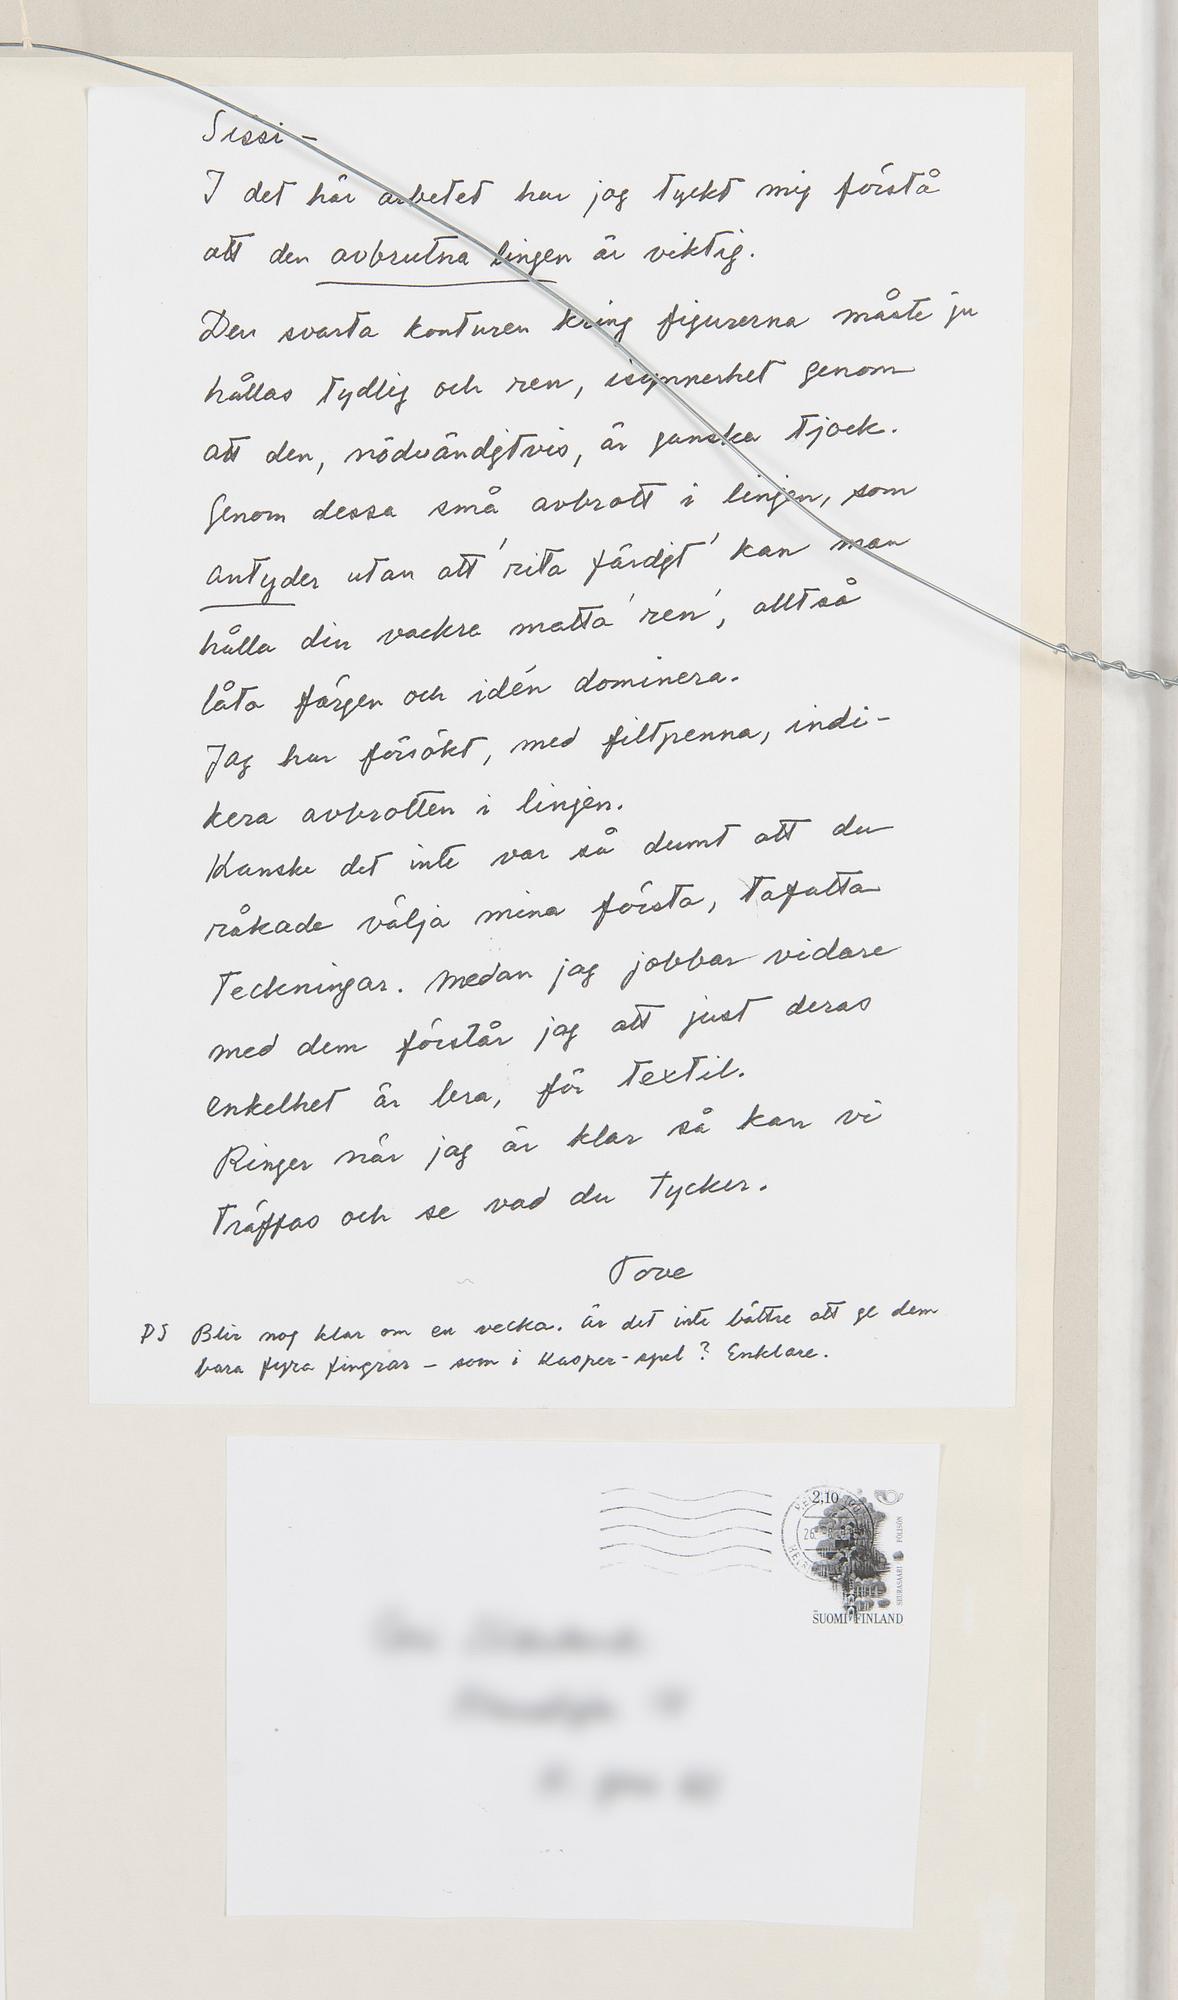 Sissi –
I det här arbetet har jag tyckt mig förstå
att den avbrutna lingen är viktig.
Den svarta konturen kring figurerna måste ju
hållas tydlig och ren, isynnerhet genom
att den, nödvändgtvis, är ganska tjock.
Genom dessa små avbrott i linjen, som
antyder utan att 'rita färdgt' kan man
hålla din vackra matta 'ren', alltså
låta färgen och idén dominera.
Jag har försökt, med filtpenna, indi-
kera avbrotten i linjen.
Kanske det inte var så dumt att du
råkade välja mina första, tafatta
teckningar. Medan jag jobbar vidare
med dem förstår jag att just deras
enkelhet är bra, för textil.
Ringer när jag är klar så kan vi
träffas och se vad du tycker.
Tove
PS Blir nog klar om en vecka. Är det inte bättre att ge dem
bara fyra fingrar – som i Kasper-spel? Enklare.
2,10
SEURASAARI FÖLISÖN
SUOMI FINLAND